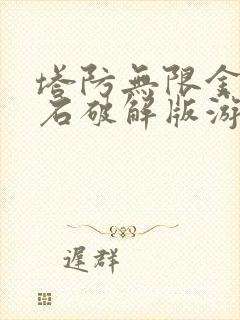 塔防無限金
石破解版游
遲群